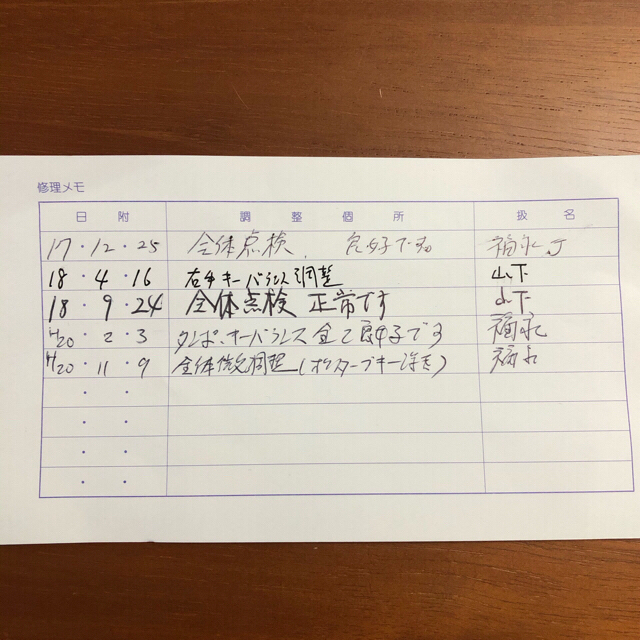 修理メモ
日附 調整個所 扱名
17・12・25 全体点検、良好です。 福永
18・4・16 右手キーバランス調整 山下
18・9・24 全体点検 正常です 山下
H20・2・3 タンポ、キーバランス全て良好です 福永
H20・11・9 全体微調整(オクターブキー注意) 福永
・ ・
・ ・
・ ・
・ ・